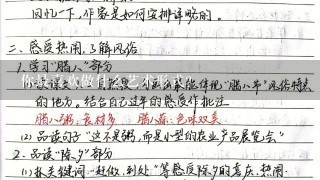 回忆一下，作家是如何安排详略的。
二、感受热闹，了解风俗
1. 学习“腊八”部分
的地方。结合自己过年的感受作批注
腊八粥：食材多 腊八蒜：色味双美
(2) 品读句子“这不是粥，而是小型的农业产品展览会”
2. 品读“除夕”部分
(1) 抓关键词“赶做、到处”等感受除夕的喜庆、热闹
你最喜欢做什么艺术形式?